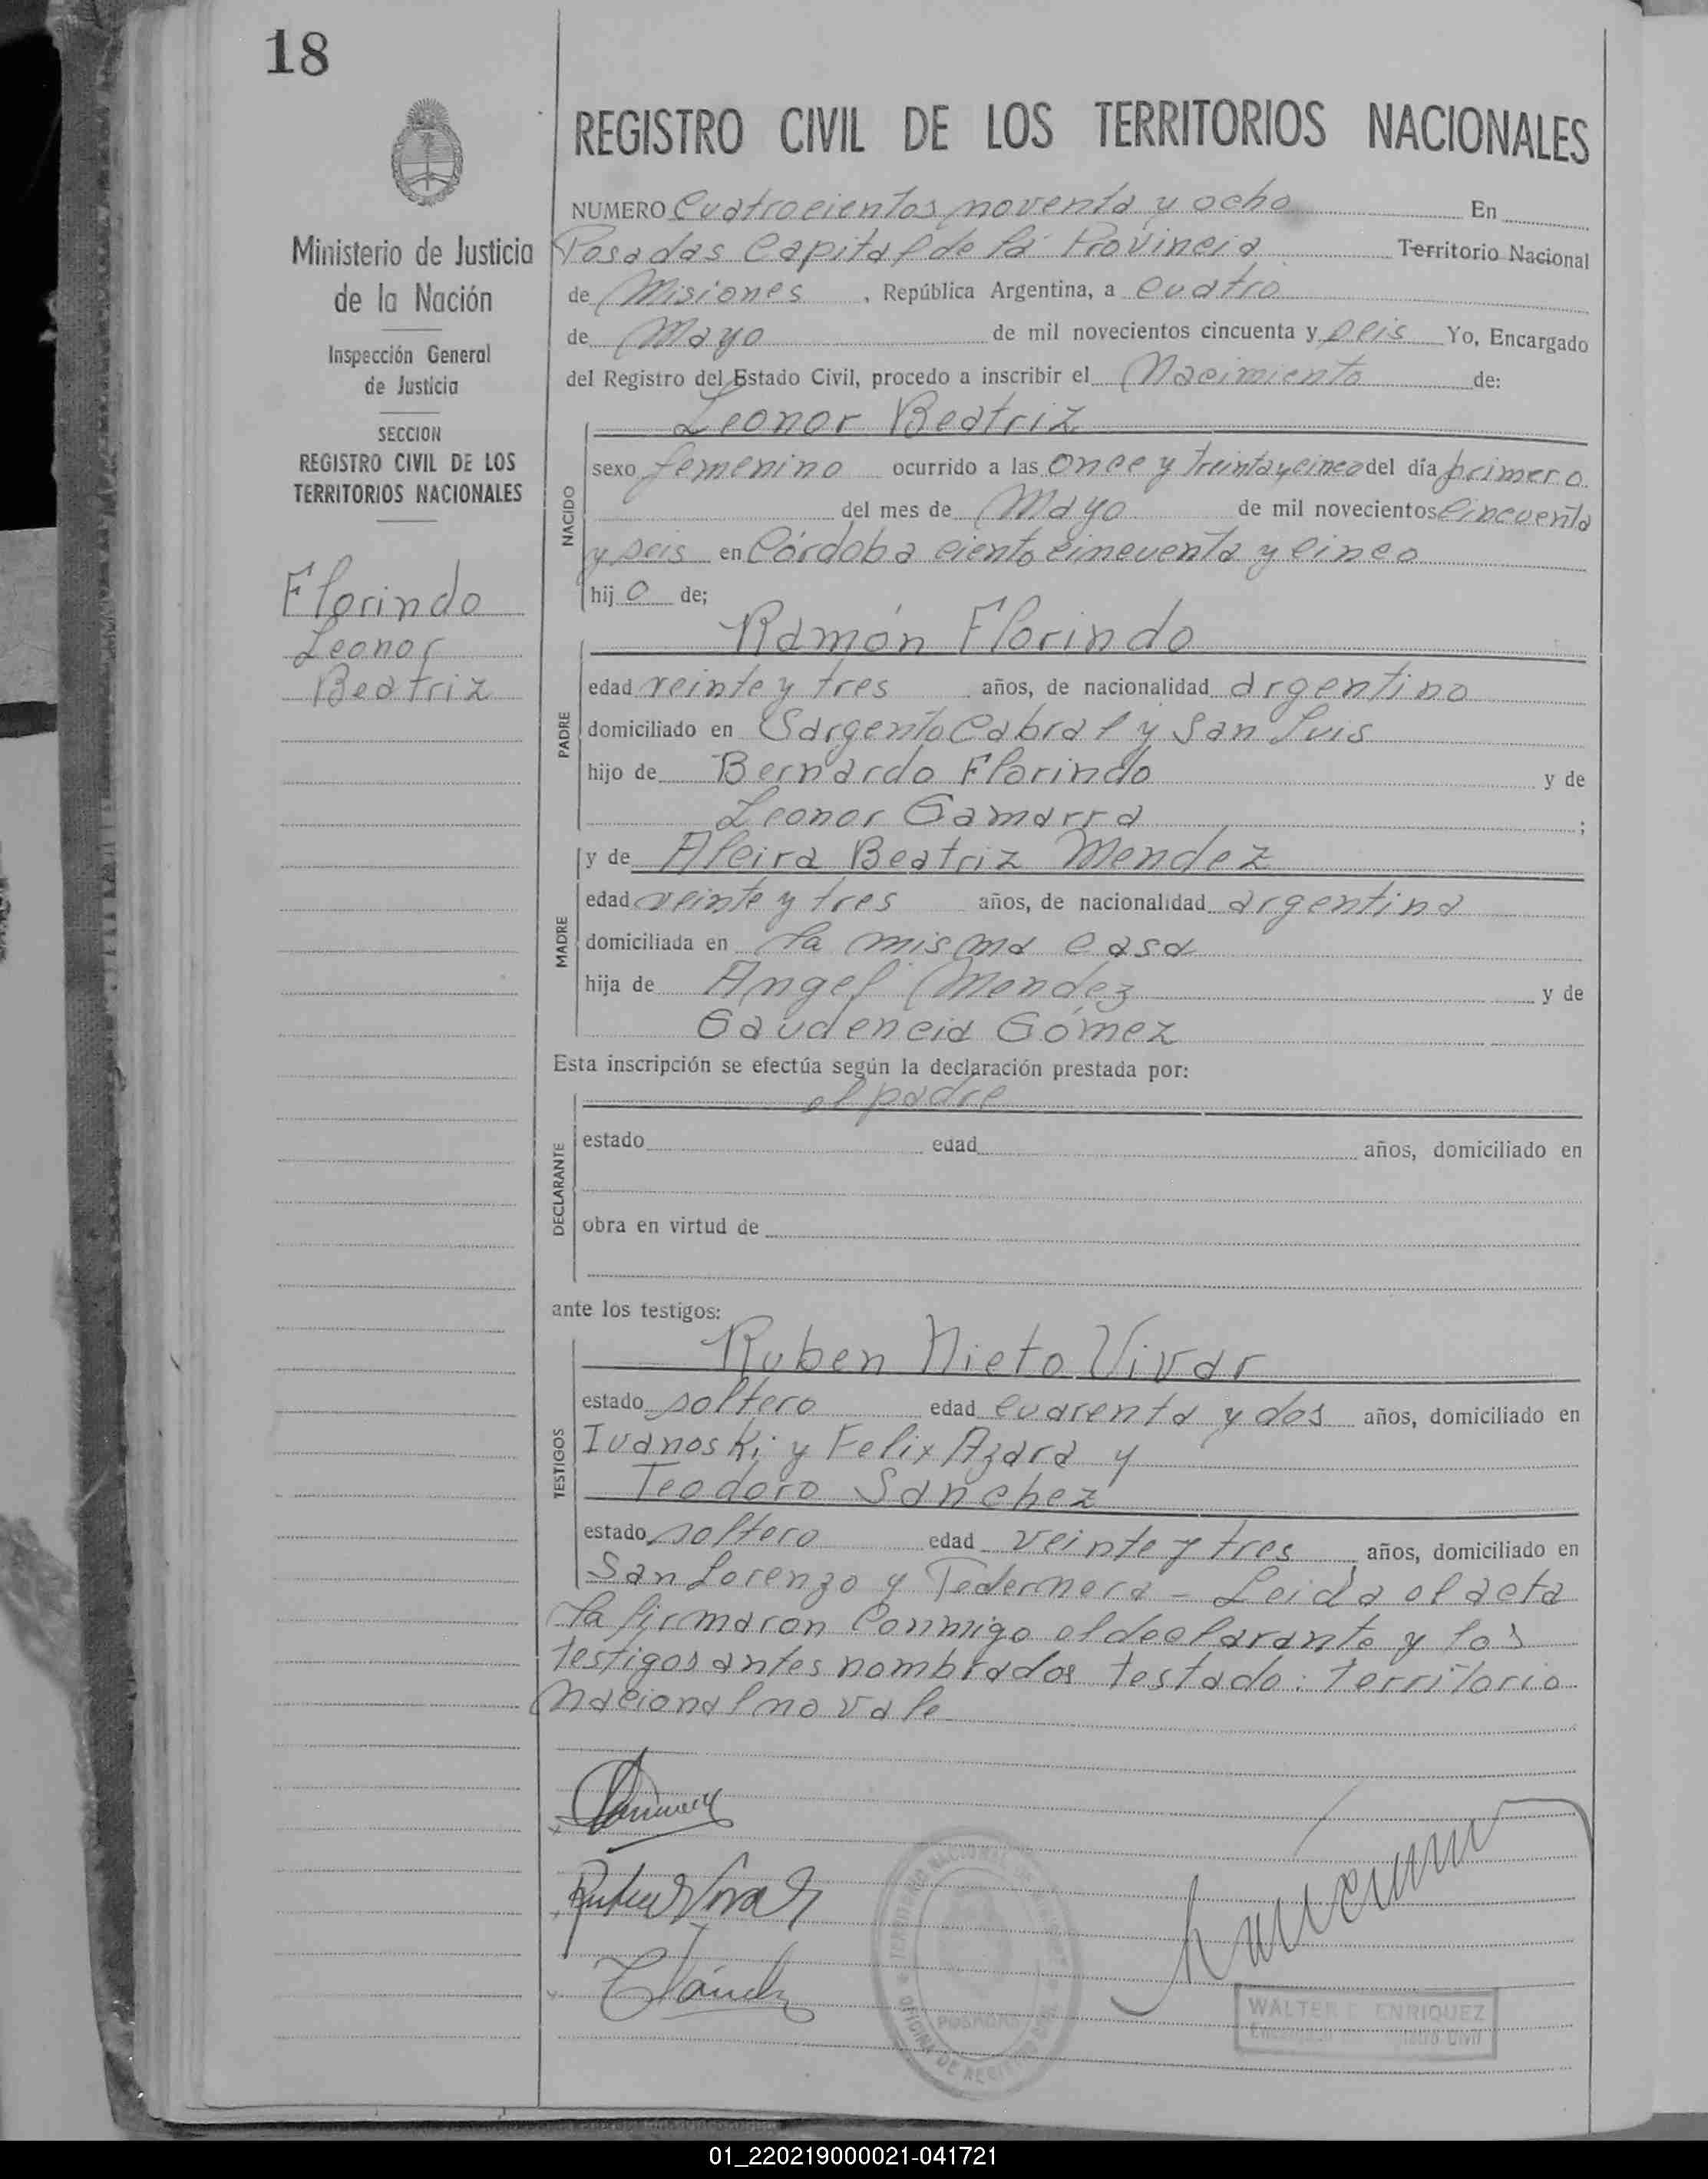 18
REGISTRO CIVIL DE LOS TERRITORIOS NACIONALES
Ministerio de Justicia
de la Nación
Inspección General
de Justicia
SECCION
REGISTRO CIVIL DE LOS
TERRITORIOS NACIONALES
Florindo
Leonor
Beatriz
NUMERO Cuatrocientos noventa y ocho En
Posadas Capital de la Provincia Territorio Nacional
de Misiones, República Argentina, a cuatro
de Mayo de mil novecientos cincuenta y seis Yo, Encargado
del Registro del Estado Civil, procedo a inscribir el Nacimiento de:
Leonor Beatriz
NACIDO
sexo femenino ocurrido a las once y treinta y cinco del día primero
del mes de Mayo de mil novecientos cincuenta
y seis en Córdoba ciento cincuenta y cinco
hij o de;
Ramón Florindo
PADRE
edad veinte y tres años, de nacionalidad argentino
domiciliado en Sargento Cabral y San Luis
hijo de Bernardo Florindo y de
Leonor Gamarra ;
y de Alcira Beatriz Mendez
MADRE
edad veinte y tres años, de nacionalidad argentina
domiciliada en la misma casa
hija de Angel Mendez y de
Gaudencia Gómez
Esta inscripción se efectúa según la declaración prestada por:
el padre
DECLARANTE
estado edad años, domiciliado en
obra en virtud de
ante los testigos:
Ruben Nieto Vivar
TESTIGOS
estado soltero edad cuarenta y dos años, domiciliado en
Ivanoski y Felix Azara y
Teodoro Sanchez
estado soltero edad veinte y tres años, domiciliado en
San Lorenzo y Pedernera - Leida el acta
la firmaron conmigo el declarante y los
testigos antes nombrados testado: territorio
nacional no vale
TERRITORIO NACIONAL
POSADAS
OFICINA DE REGISTRO
WALTER E. ENRIQUEZ
Civil
01_220219000021-041721